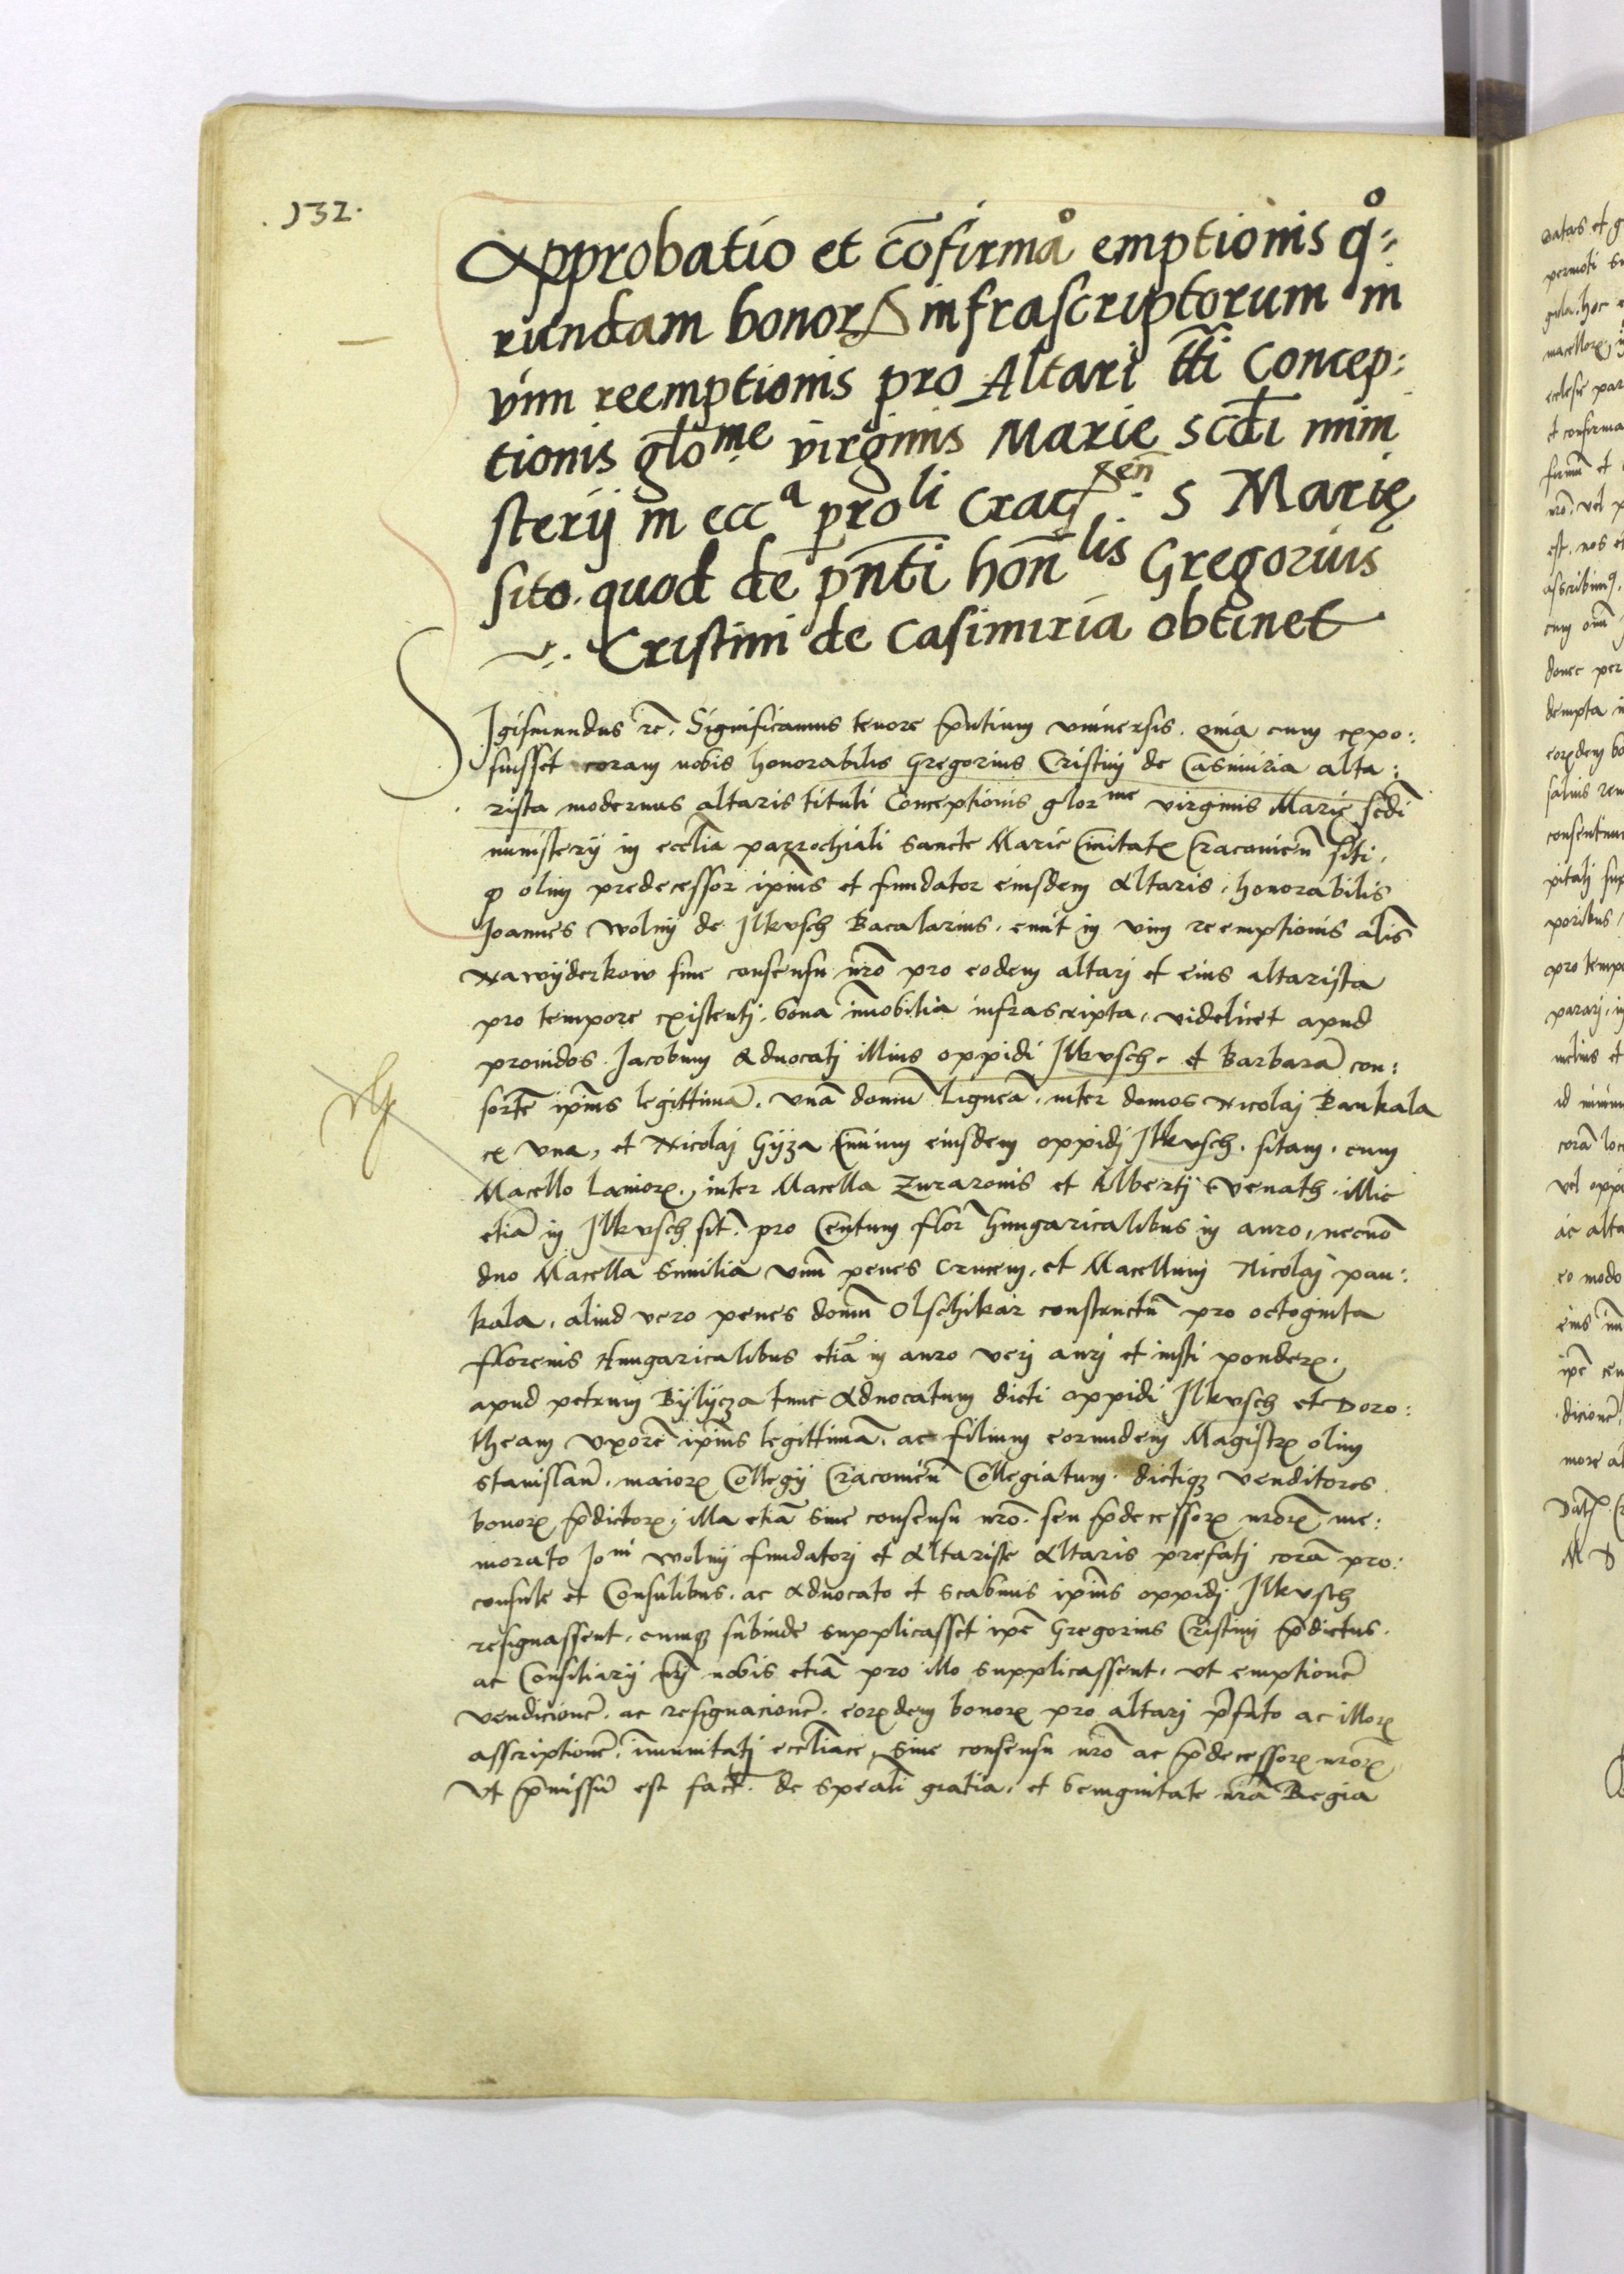 .132.
Approbatio et cōfirmaͦ emptionis qͦ=
rundam bonorꝝ infrascriptorum in
vim reemptionis pro Altari tt̄i Concep:
tionis gło^me virginis Marie scd̄i mini
sterij in ecc^a pro^li Crac^en̄: S Marię
sito. quod de pn̄ti hon̄^lis Gregorius
Cristini de Casimiria obtinet
SIgismundus rc̄. Significamus tenore p̄ntium vniuersis. quia cum expo:
suisset coram nobis honorabilis Gregorius Cristinj de Casimiria alta:
rista modernus altaris tituli Conceptionis glor^me virginis Marię scd̄i
ministerij in eccl̄ia parrochiali Sancte Marie Ciuitatꝭ Cracouień siti,
ꝙ olim predecessor ip̄ius et fundator eiusdem Altaris, honorabilis
Joannes Wolnij de Ilkusch Bacalarius, emit in vim reemptionis al̄s
Nawijderkow sine consensu nr̄o pro eodem altarj et eius altarista
pro tempore existentj, bona īmobilia infrascripta, videlicet apud
prouidos Jacobum Aduocatj illius oppidi Ilkusch. et Barbarā con:
sortē ip̄ius legittimā. vnā domū ligneā, inter domos Nicolaj Bankala
ex vna, et Nicolaj Gijza Ciuium eiusdem oppidj Ilkusch. sitam. cum
Macello Laniorꝝ, inter Macella Zuraronis et Albertj Swenath. illic
etiā in Ilkusch sit̄. pro Centum flor̄ hungaricalibus in auro, necnō
duo Macella similia vnū penes Crucem, et Macellum Nicolaj pan:
kala, aliud vero penes domū Olschikar constructū pro octoginta
florenis Hungaricalibus etiā in auro verj aurj et iusti ponderꝭ.
apud petrum Bijlijcza tunc Aduocatum dicti oppidi Ilkusch et Doro:
theam vxorē ip̄ius legittimā. ac filium eorundem Magistrꝝ olim
Stanislaū, maiorꝭ Collegij Cracouień Collegiatum. dictiqꝫ venditores
bonorꝝ p̄dictorꝝ, illa etiā sine consensu nr̄o. seu p̄decessorꝝ nr̄orꝝ me:
morato Jo^ni Wolnij fundatorj et Altariste Altaris prefatj corā pro:
consule et Consulibus. ac Aduocato et scabinis ip̄ius oppidj Ilkusch
resignassent, cumqꝫ subinde supplicasset ip̄e Gregorius Cristinj p̄dictus.
ac Consiliarij nr̄j nobis etiā pro illo supplicassent, vt emptionē
vendicionē. ac resignacionē. eorꝝdem bonorꝝ pro altarj p̄fato ac illorꝝ
asscriptionē. īmunitatj eccl̄iace, sine consensu nr̄o ac p̄decessorꝝ nr̄orꝝ
vt p̄missū est fact̄. de sp̄eali gratia, et benignitate nr̄a Regia